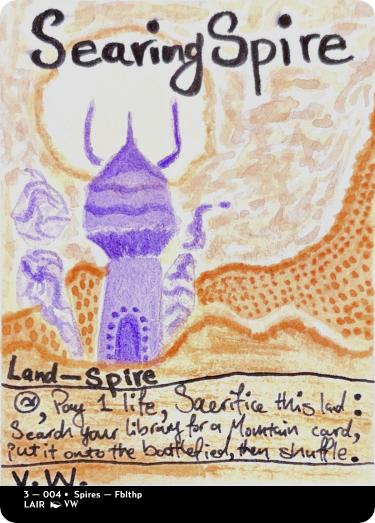 Searing Spire
Land — Spire
, Pay 1 life, Sacrifice this lad:
Search your library for a Mountain card,
put it onto the battlefied, then shuffle.
V.W.
3 — 004 • Spires — Fblthp
LAIR VW